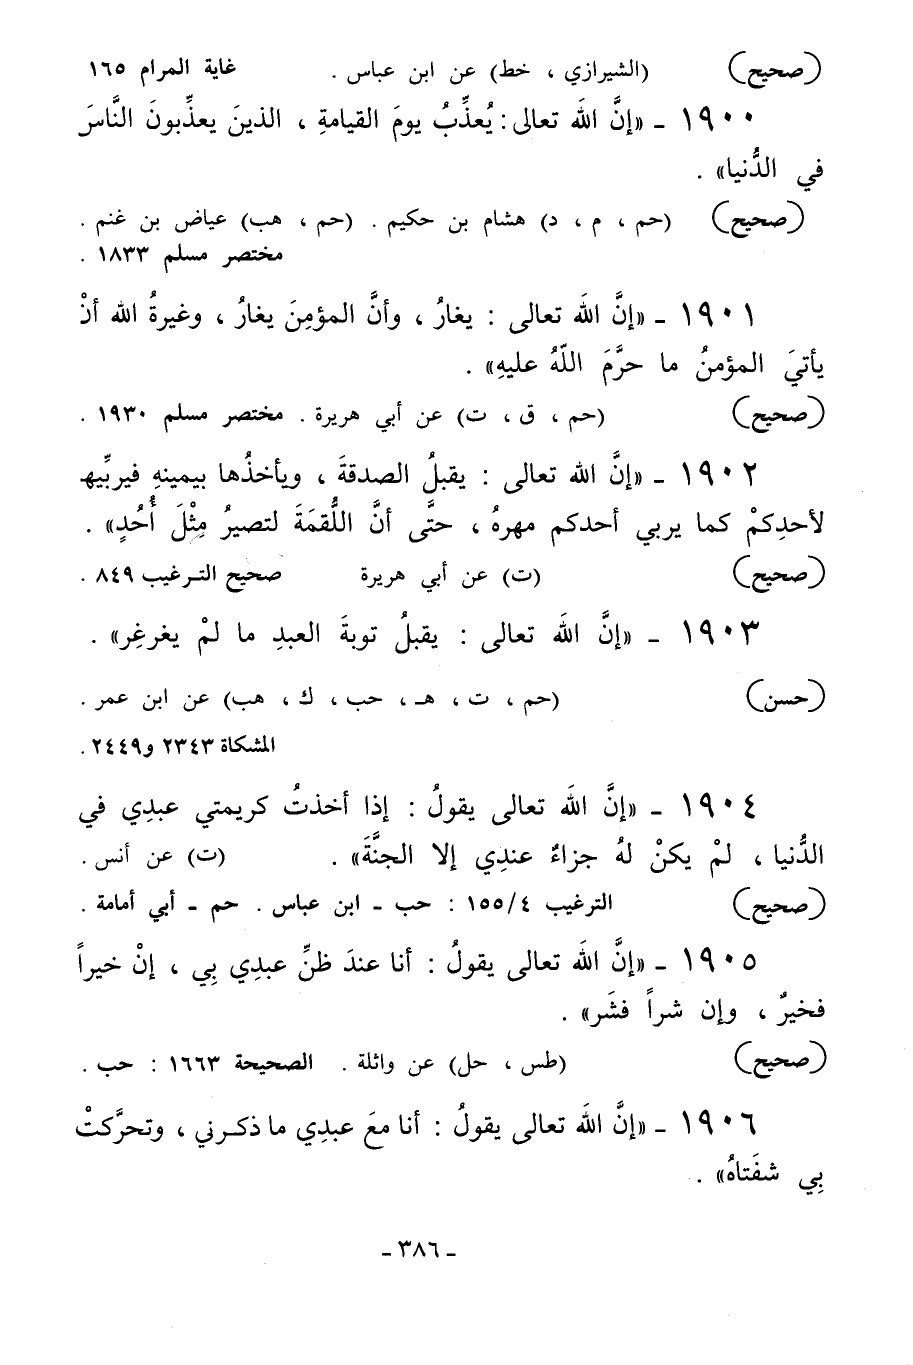 (صحيح) (الشيرازي ، خط) عن ابن عباس . غاية المرام ١٦٥
١٩٠٠ ـ «إنَّ اللهَ تعالى : يُعذِّبُ يومَ القيامةِ ، الذينَ يعذِّبونَ النَّاسَ
في الدُّنيا» .
(صحيح) (حم ، م ، د) هشام بن حكيم . (حم ، هب) عياض بن غنم .
مختصر مسلم ١٨٣٣ .
١٩٠١ ـ «إنَّ اللهَ تعالى : يغارُ ، وأنَّ المؤمِنَ يغارُ ، وغيرةُ الله أنْ
يأتيَ المؤمنُ ما حرَّمَ اللّهُ عليهِ» .
(صحيح) (حم ، ق ، ت) عن أبي هريرة . مختصر مسلم ١٩٣٠ .
١٩٠٢ ـ «إنَّ الله تعالى : يقبلُ الصدقةَ ، ويأخذُها بيمينهِ فيربِّيها
لأحدِكمْ كما يربي أحدكم مهرهُ ، حتَّى أنَّ اللُّقمَةَ لتصيرُ مِثْلَ أُحُدٍ» .
(صحيح) (ت) عن أبي هريرة صحيح الترغيب ٨٤٩ .
١٩٠٣ ـ «إنَّ اللهَ تعالى : يقبلُ توبةَ العبدِ ما لمْ يغرغِر» .
(حسن) (حم ، ت ، هـ ، حب ، ك ، هب) عن ابن عمر .
المشكاة ٢٣٤٣ و٢٤٤٩ .
١٩٠٤ ـ «إنَّ اللهَ تعالى يقولُ : إذا أخذتُ كريمتي عبدِي في
الدُّنيا ، لمْ يكنْ لهُ جزاءٌ عندِي إلا الجنَّةَ» . (ت) عن أنس .
(صحيح) الترغيب ١٥٥/٤ : حب ـ ابن عباس . حم ـ أبي أمامة .
١٩٠٥ ـ «إنَّ اللهَ تعالى يقولُ : أنا عندَ ظنِّ عبدِي بِي ، إنْ خيراً
فخيرٌ ، وإن شراً فشَر» .
(صحيح) (طس ، حل) عن واثلة . الصحيحة ١٦٦٣ : حب .
١٩٠٦ ـ «إنَّ اللهَ تعالى يقولُ : أنا معَ عبدِي ما ذكرني ، وتحرَّكتْ
بِي شفَتاهُ» .
ـ ٣٨٦ ـ